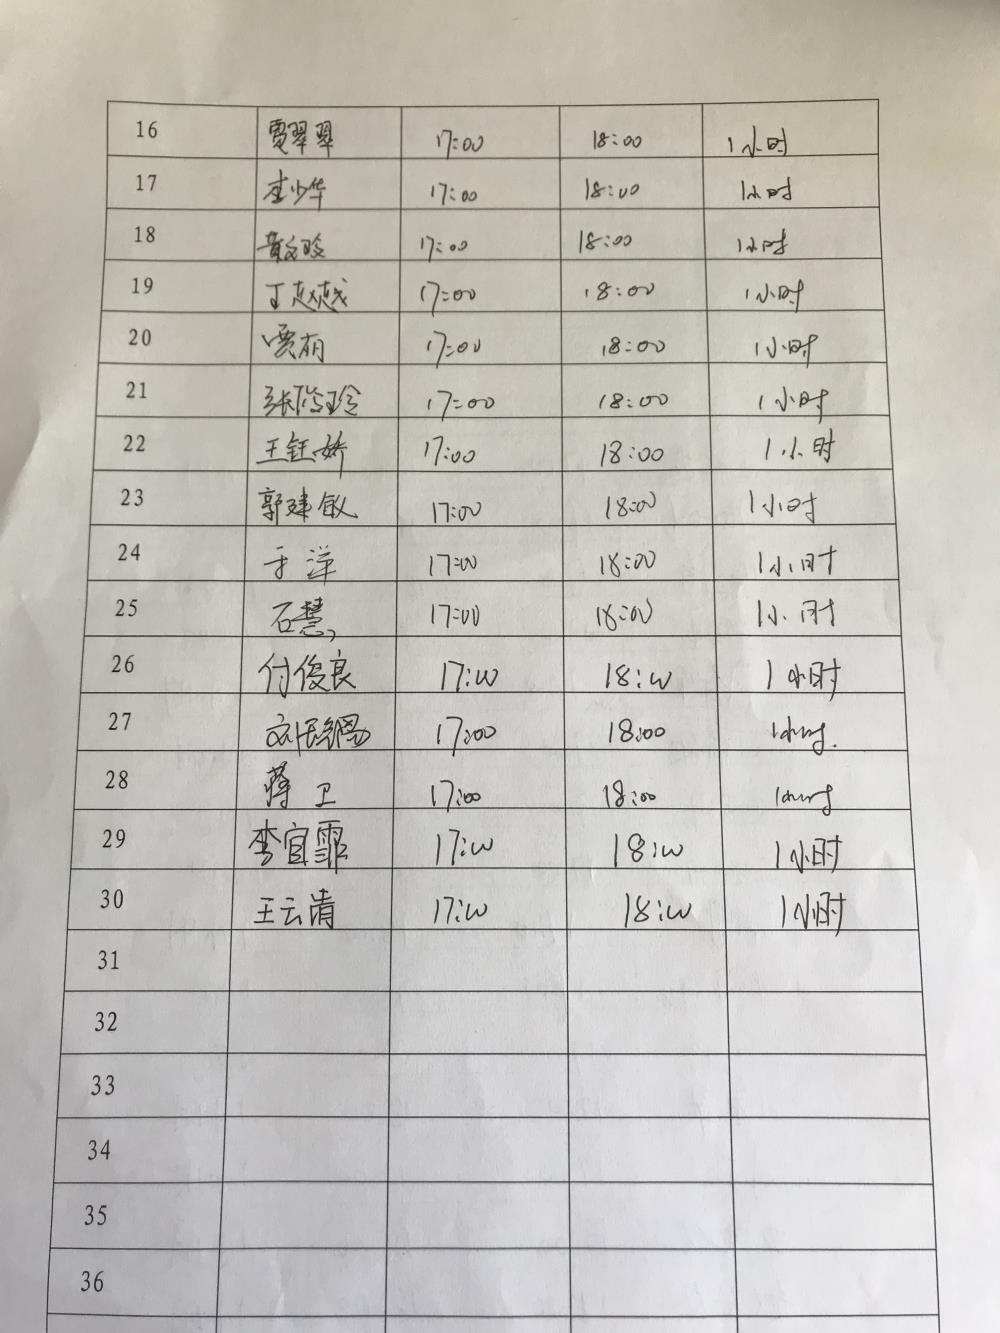 16 贾翠翠 17:00 18:00 1小时
17 李少华 17:00 18:00 1小时
18 黄文玲 17:00 18:00 1小时
19 丁越越 17:00 18:00 1小时
20 贾丽 17:00 18:00 1小时
21 张俊玲 17:00 18:00 1小时
22 王钰娇 17:00 18:00 1小时
23 郭建敏 17:00 18:00 1小时
24 于洋 17:00 18:00 1小时
25 石慧 17:00 18:00 1小时
26 付俊良 17:00 18:00 1小时
27 17:00 18:00 1小时
28 蒋卫 17:00 18:00 1小时
29 李宜霏 17:00 18:00 1小时
30 王云清 17:00 18:00 1小时
31
32
33
34
35
36